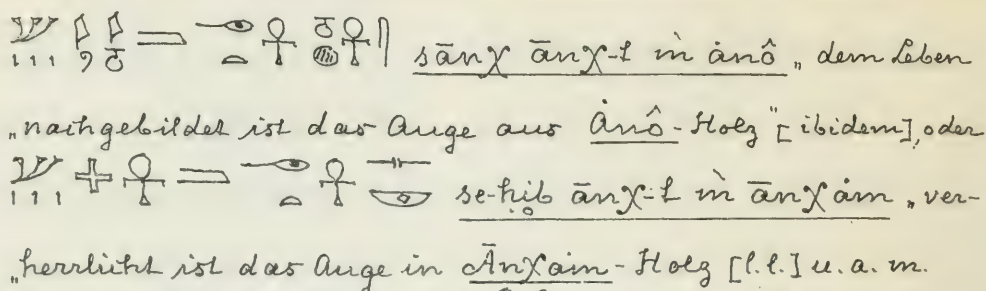 sānχ ānχ-t m̀ ȧnô „dem Leben
„nachgebildet ist das Auge aus Ȧnô-Holz" [ibidem], oder
se-ḥib ānχ-t m̀ ānχȧm „ver-
„herrlicht ist das Auge in Ānχȧm-Holz [l.l.] u. a. m.